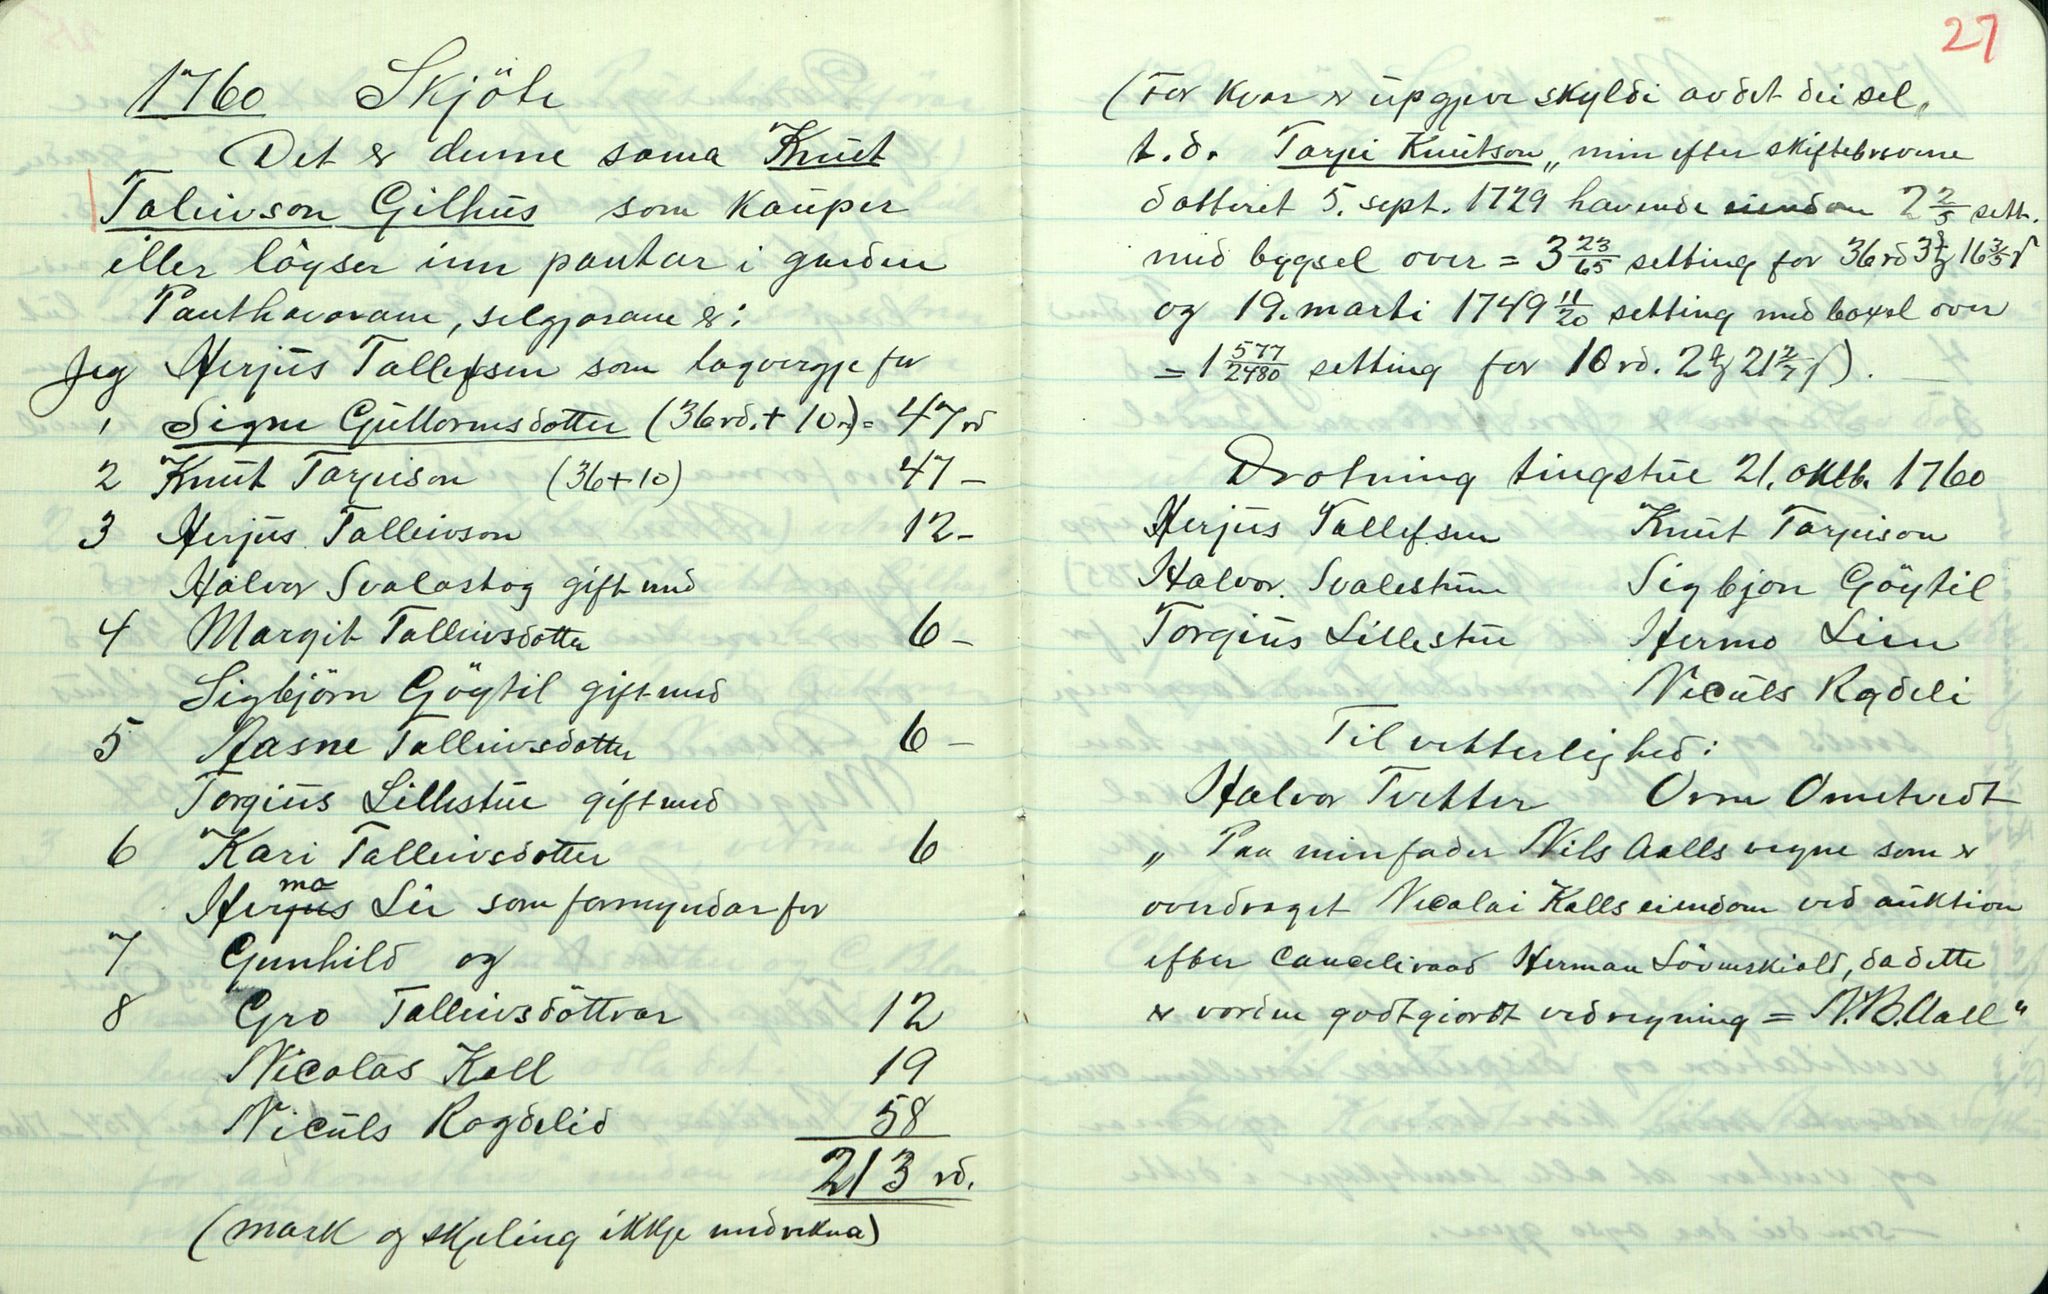 1760 Skjöte
Det er denne sama Knut
Taleivson Gilhus som kauper
eller löyser inn pantar i garden
Panthavarane, selgjarane er:
Jeg Herjus Tallefsen som lagverje for
1 Signe Guttormsdotter (36 rd. + 10 rd) = 47 rd
2 Knut Tarjeison (36+10) 47 –
3 Herjus Talleivson 12 –
Halvor Svalastog gift med
4 Margit Talleivsdotter 6 –
Sigbjörn Göytil gift med
5 Aasne Talleivsdotter 6 –
Torgius Lillestue gift med
6 Kari Talleivsdotter 6
ma
Herjus Lie som formyndar for
7 Gunhild og
8 Gro Talleivsdöttrar 12
Nicolas Kall 19
Niculs Rogdelid 58
213 rd.
(mark og skjeling ikkje medrekna)
27
(For kvar er upgjeve skyldi av det dei sel,
t.d. Tarjei Knutson „min efter skiftebrevene
datteret 5. sept. 1729 havende eiendom 2 2/5 sett.
med bygsel over = 3 23/65 setting for 36 rd 3 16 3/5
og 19. marti 1749 11/20 setting med boxel over
= 1 577/2480 setting for 10 rd. 2 21 2/7 ).
Drotning tingstue 21. oktb. 1760
Herjus Tallefsen Knut Tarjeison
Halvor. Svalestuen Sigbjon Göytil
Torgius Lillestue Hermo Lien
Niculs Rogdeli
Til vitterlighed:
Halvor Tvetter Orm Ometvedt
„ Paa min fader Nils Aalls vegne som er
overdraget Nicolai Kalls eiendom ved auktion
efter Cancelivaad Herman Lövenskiold, da dette
er vorden godtgiordt ved regning = N.B. Aall"